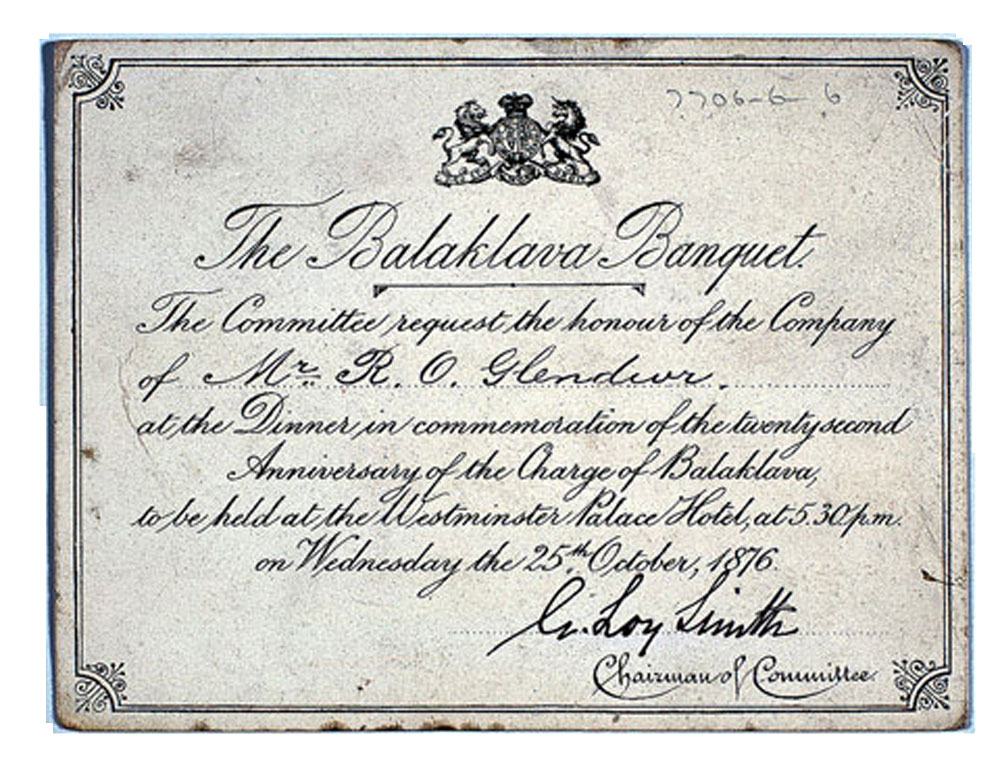 7706-6-6
The Balaklava Banquet.
The Committee request the honour of the Company
of Mr. R. O. Glendwr.
at the Dinner, in commemoration of the twenty second
Anniversary of the Charge of Balaklava,
to be held at the Westminster Palace Hotel, at 5.30 p.m.
on Wednesday the 25th October, 1876.
G. Loy Smith
Chairman of Committee.